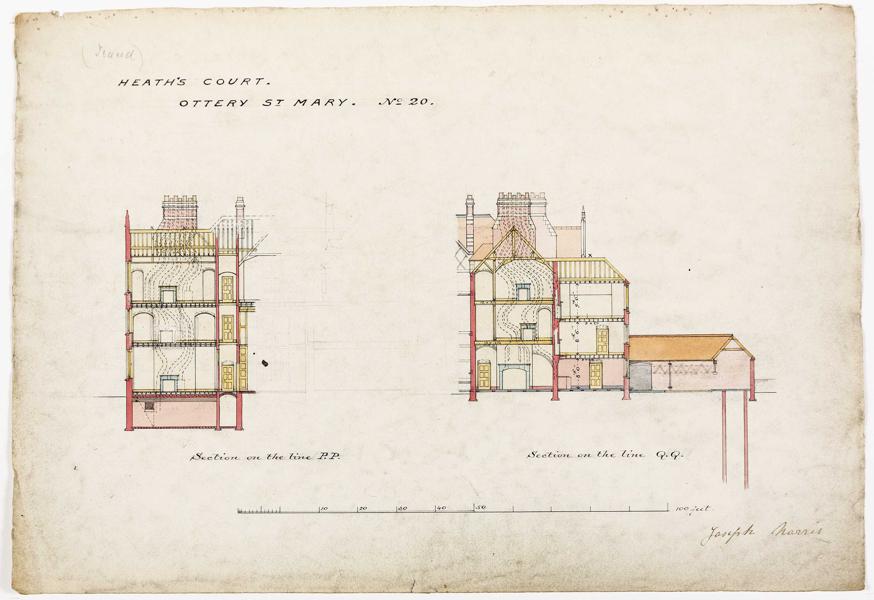 HEATH'S COURT.
OTTERY ST MARY. No 20.
Section on the line P.P.
Section on the line Q.Q.
10 20 30 40 50 100 feet.
Joseph Morris